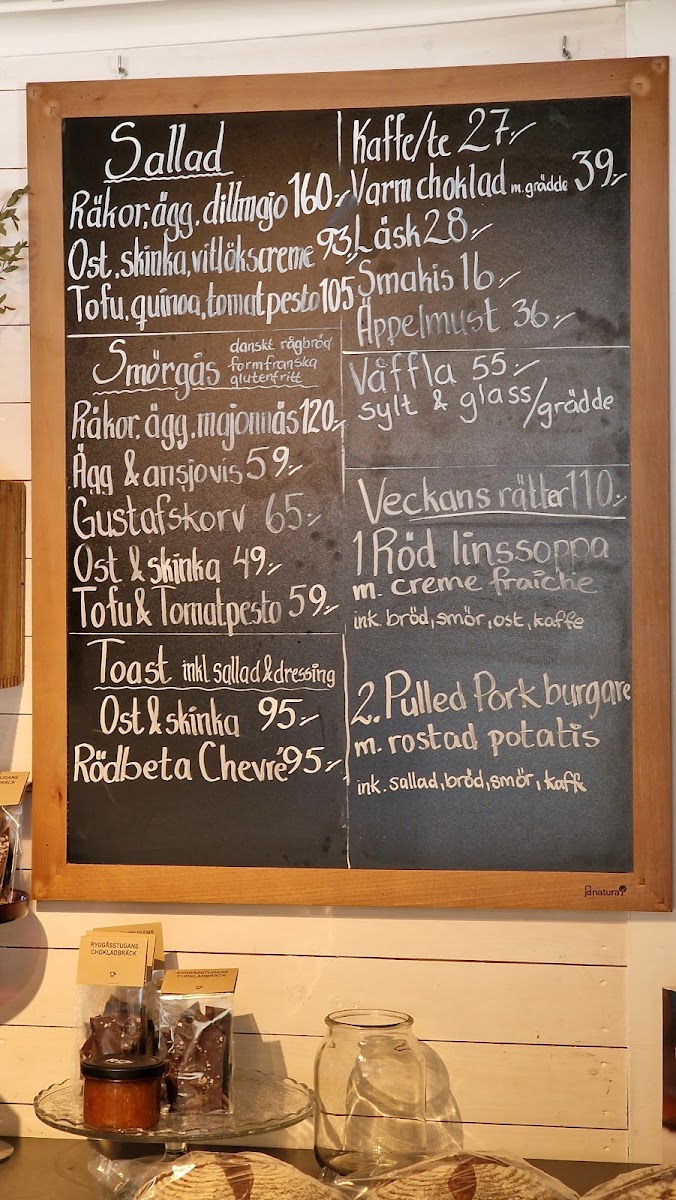 Sallad
Räkor, ägg, dillmajo 160:-
Ost, skinka, vitlökscreme 93:-
Tofu, quinoa, tomatpesto 105
Smörgås
danskt rågbröd
formfranska
glutenfritt
Räkor, ägg, majonnäs 120:-
Ägg & ansjovis 59:-
Gustafskorv 65:-
Ost & skinka 49:-
Tofu & Tomatpesto 59:-
Toast inkl sallad & dressing
Ost & skinka 95:-
Rödbeta Chevré 95:-
Kaffe/te 27:-
Varm choklad m. grädde 39:-
Läsk 28:-
Smakis 16:-
Äppelmust 36:-
Våffla 55:-
sylt & glass/grädde
Veckans rätter 110:-
1 Röd linssoppa
m. creme fraiche
ink. bröd, smör, ost, kaffe
2. Pulled Pork burgare
m. rostad potatis
ink. sallad, bröd, smör, kaffe
jdnatura
RYGGÅSSTUGANS
CHOKLADBRÄCK
RYGGÅSSTUGANS
CHOKLADBRÄCK